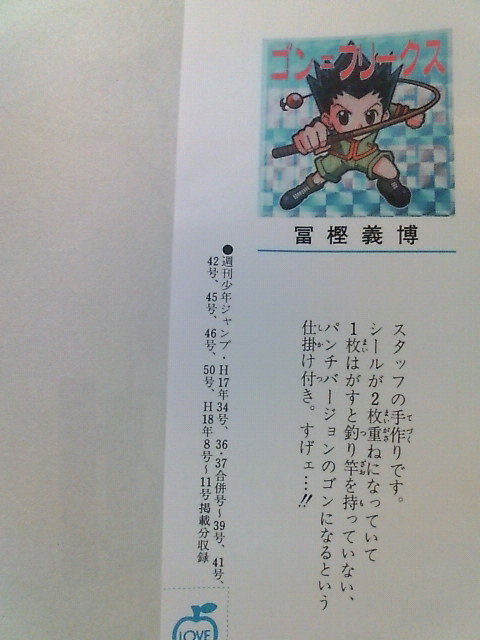 ゴン=フリークス
冨樫義博
スタッフの手作りです。
シールが2枚重ねになっていて
1枚はがすと釣り竿を持っていない、
パンチバージョンのゴンになるという
仕掛け付き。すげェ…!!
●週刊少年ジャンプ・H17年34号、36・37合併号〜39号、41号、
42号、45号、46号、50号、H18年8号〜11号掲載分収録
LOVE